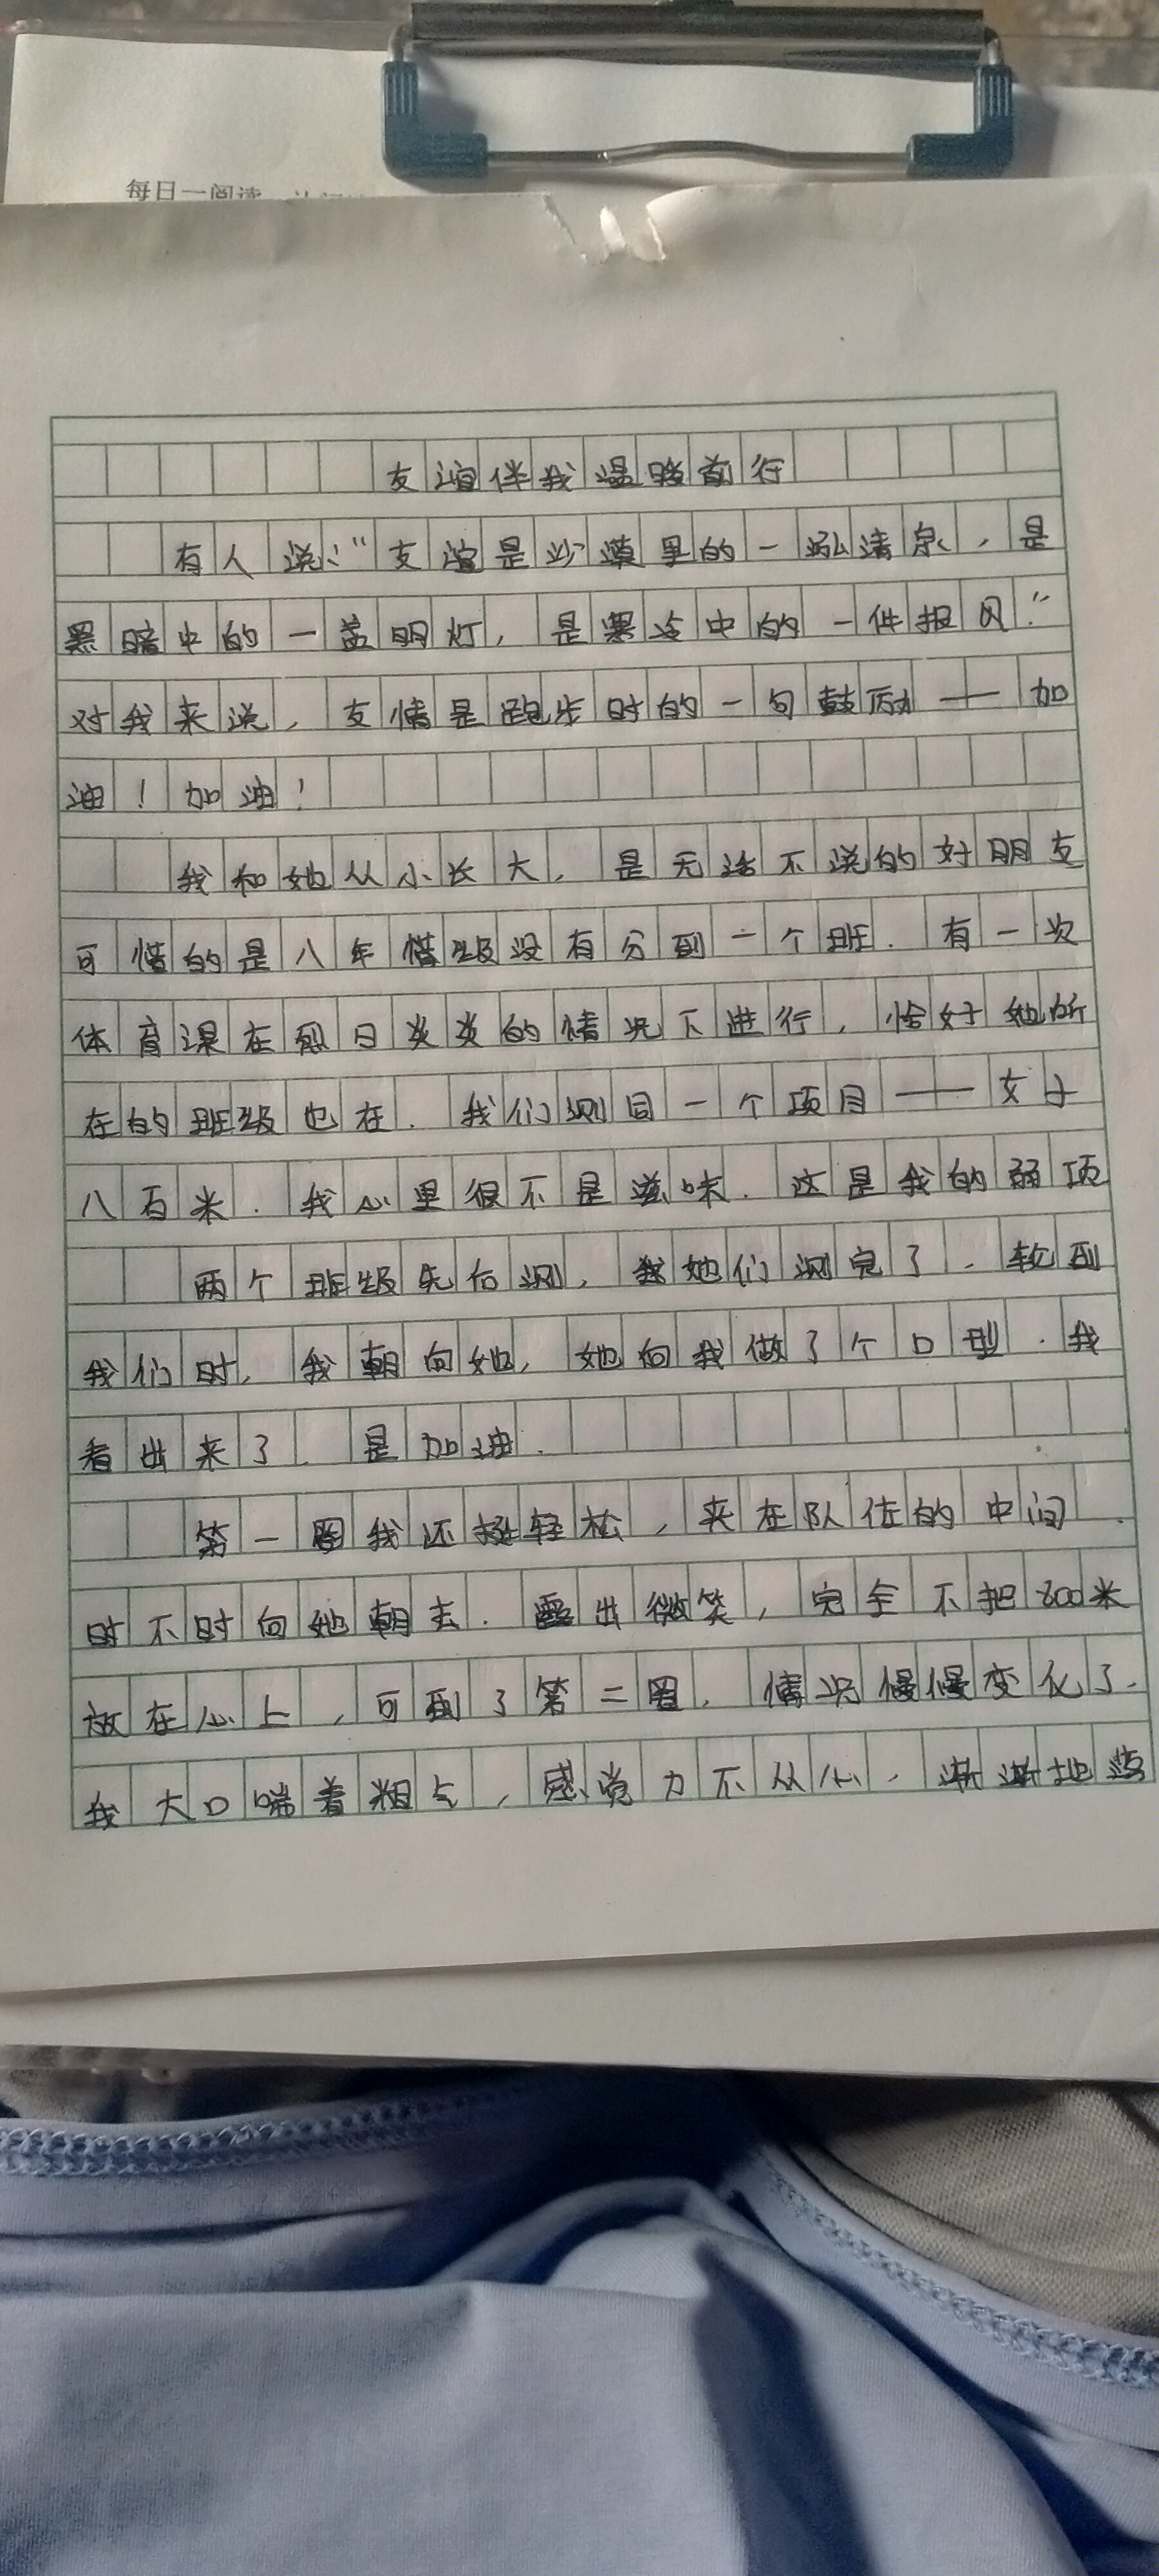 每日一阅读
友谊伴我温暖前行
有人说:“友谊是沙漠里的一泓清泉,是
黑暗中的一盏明灯,是寒冷中的一件披风.”
对我来说,友情是跑步时的一句鼓励——加
油!加油!
我和她从小长大,是无话不说的好朋友
可惜的是八年级没有分到一个班.有一次
体育课在烈日炎炎的情况下进行,恰好她所
在的班级也在.我们测同一个项目——女子
八百米.我心里很不是滋味.这是我的弱项
两个班级先后测,她们测完了,轮到
我们时,我朝向她,她向我做了个口型.我
看出来了.是加油.
第一圈我还挺轻松,夹在队伍的中间.
时不时向她朝去.露出微笑,完全不把800米
放在心上,可到了第二圈,情况慢慢变化了.
我大口喘着粗气,感觉力不从心,渐渐地落